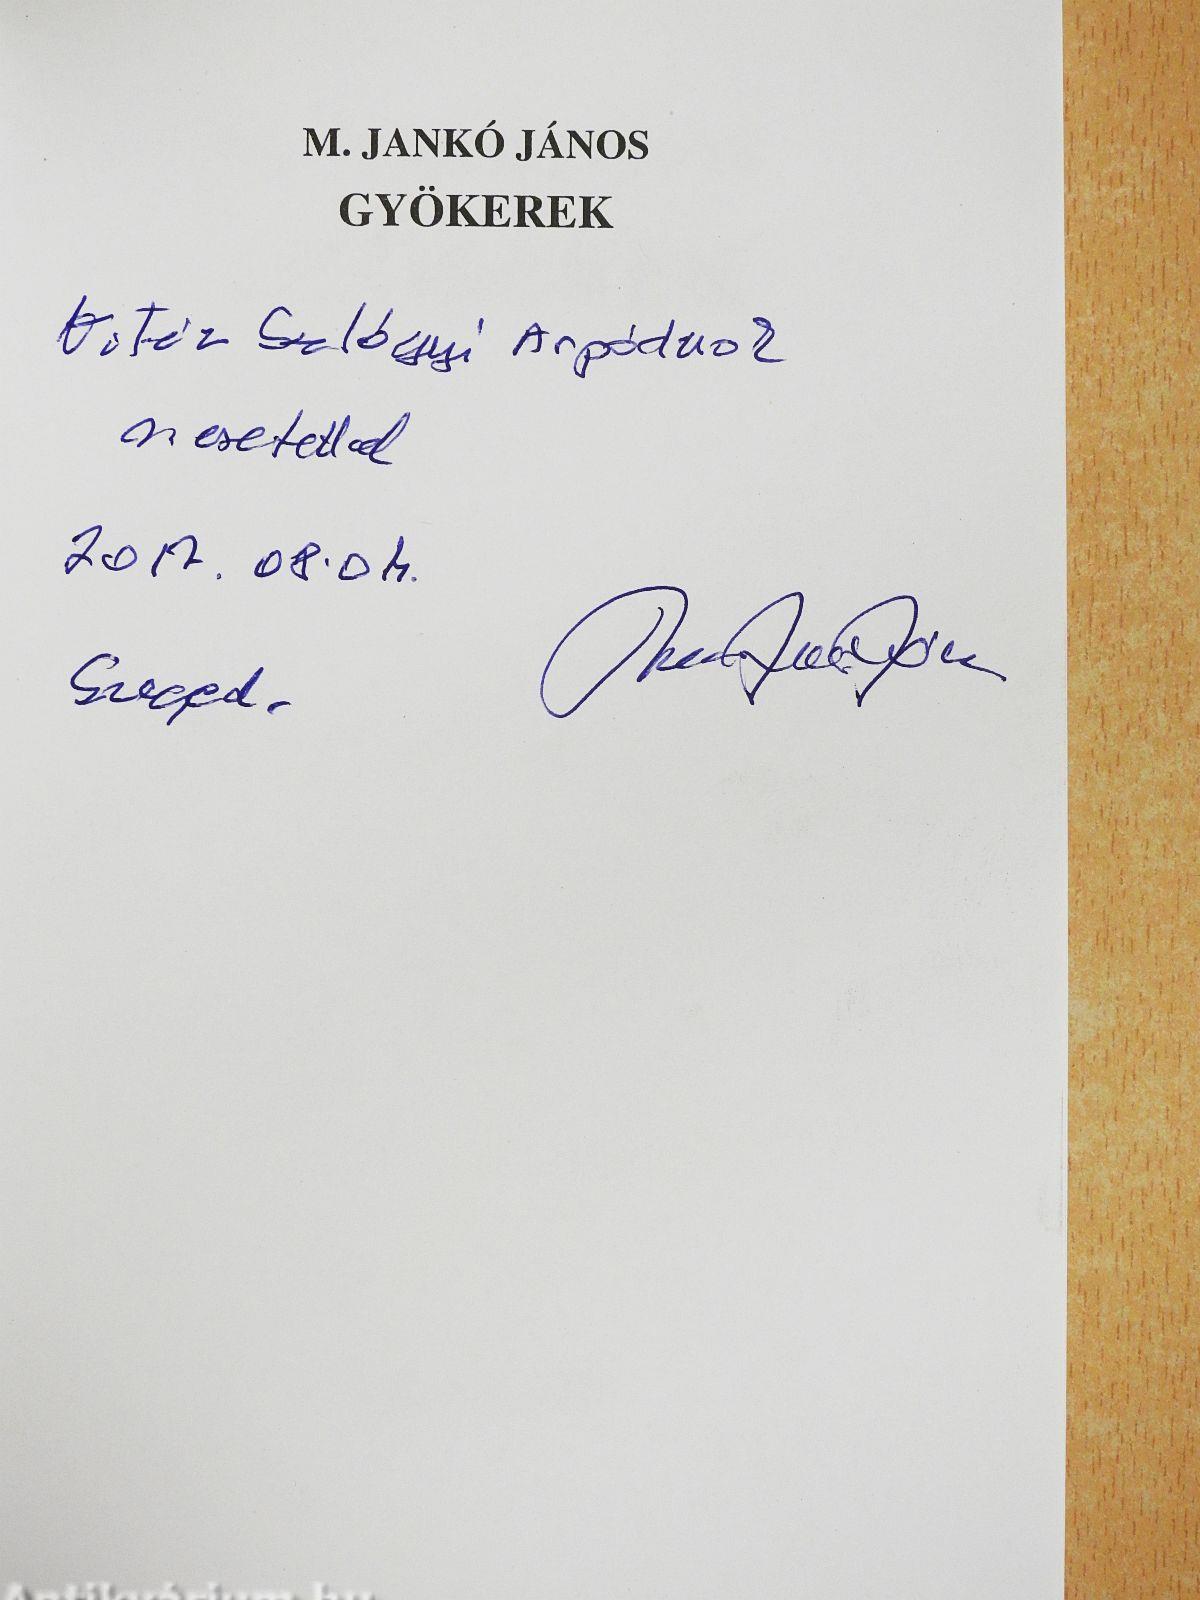 M. JANKÓ JÁNOS
GYÖKEREK
Vitéz Szilágyi Árpádnak
szeretettel
2017. 08. 04.
Szeged.
Antikvárium.hu